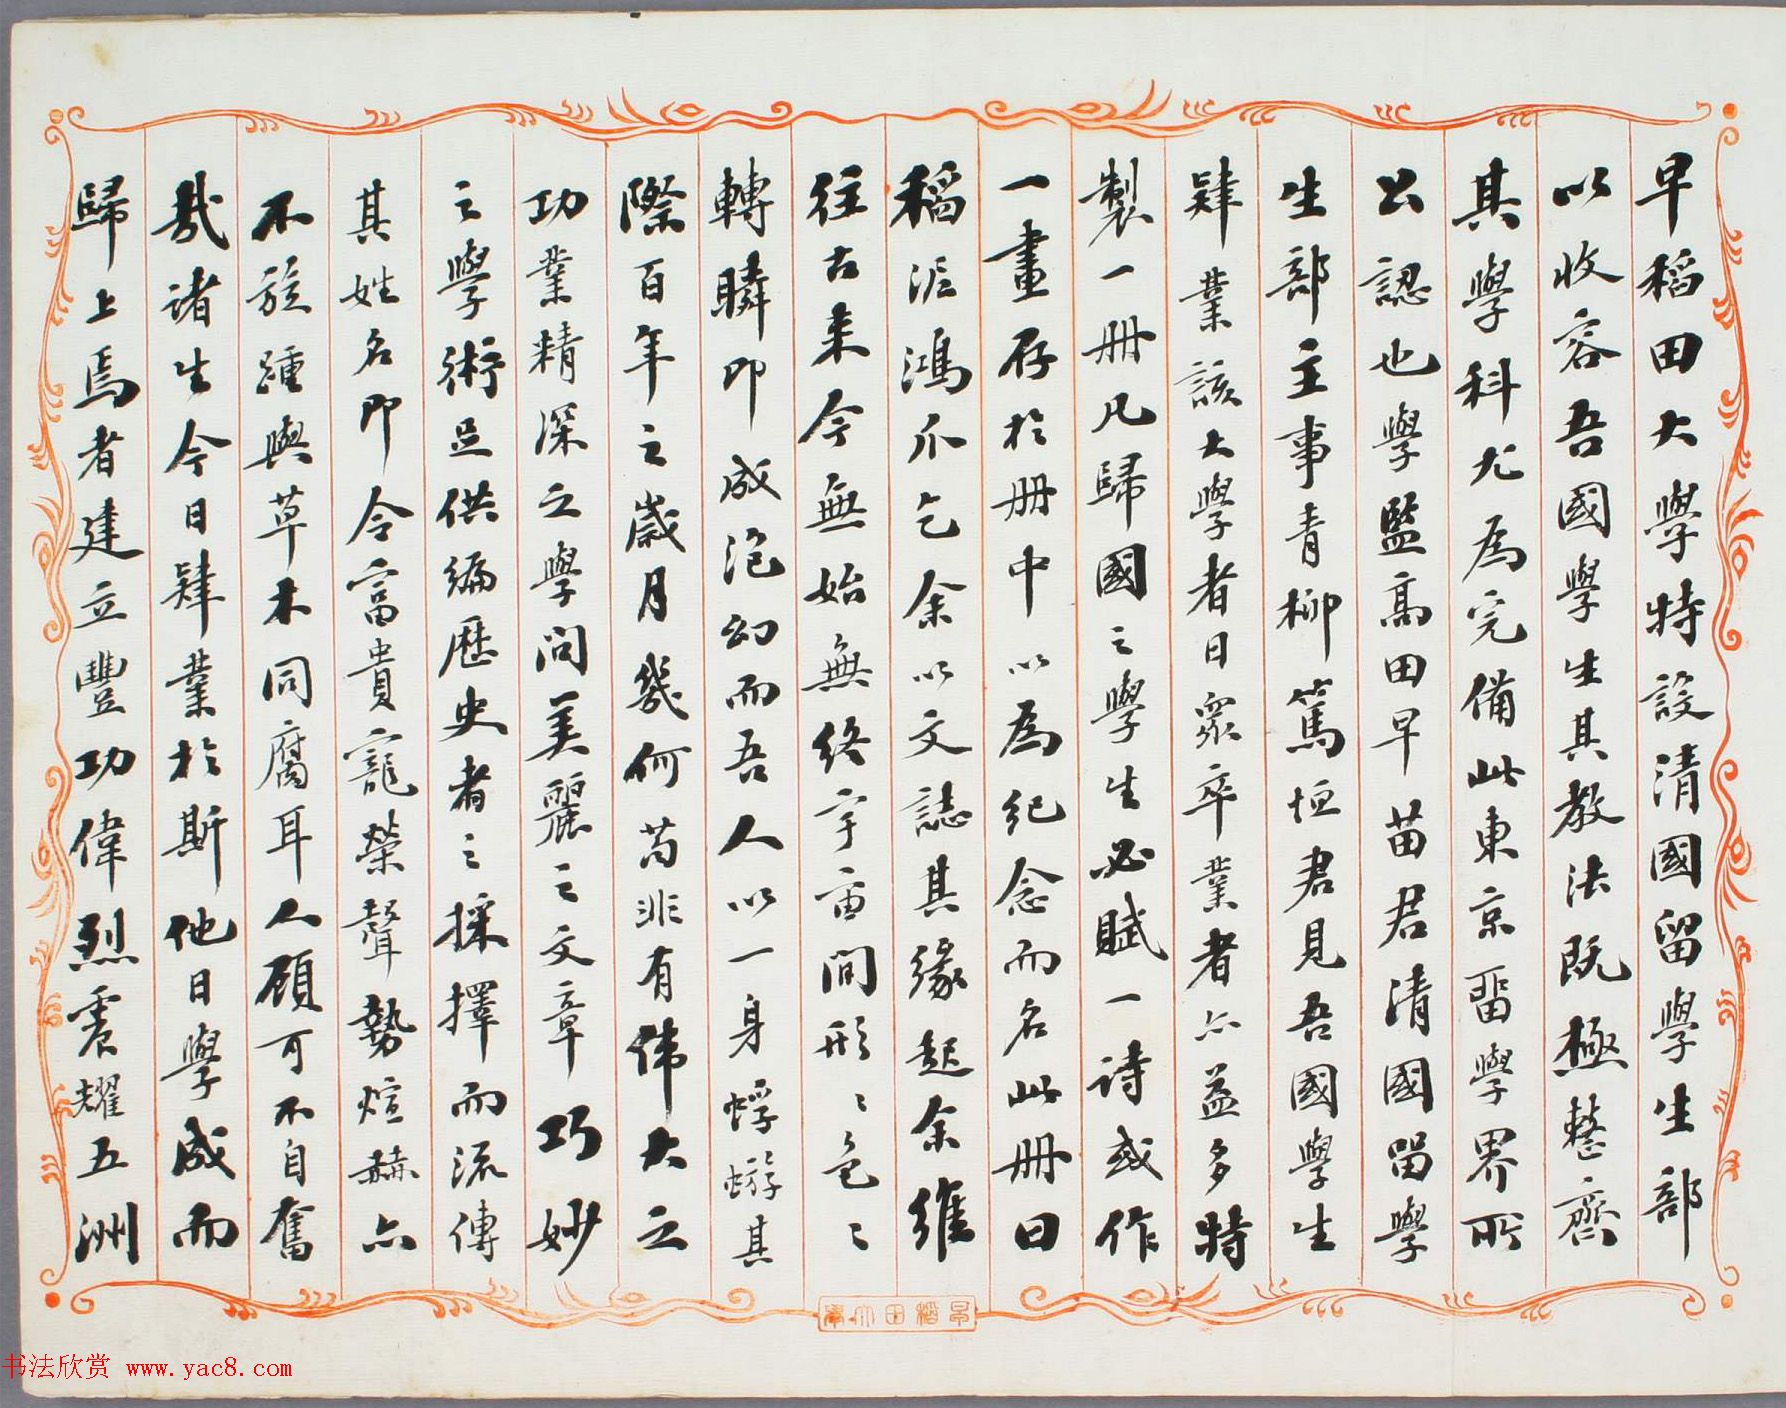 早稻田大學特設清國留學生部
以收容吾國學生其教法既極整齊
其學科尤為完備此東京畱學界所
公認也學監高田早苗君清國留學
生部主事青柳篤恒君見吾國學生
肄業該大學者日眾卒業者亦益多特
製一冊凡歸國之學生必賦一詩或作
一畫存於冊中以為紀念而名此冊曰
稻泥鴻爪乞余以文誌其緣起余維
往古來今無始無終宇宙間形〻色〻
轉瞬即成泡幻而吾人以一身蜉蝣其
際百年之歲月幾何苟非有偉大之
功業精深之學問美麗之文章巧妙
之學術足供編歷史者之採擇而流傳
其姓名即令富貴寵榮聲勢煊赫亦
不旋踵與草木同腐耳人顧可不自奮
哉諸生今日肄業於斯他日學成而
歸上焉者建立豐功偉烈震耀五洲
早稻田大學
书法欣赏 www.yac8.com